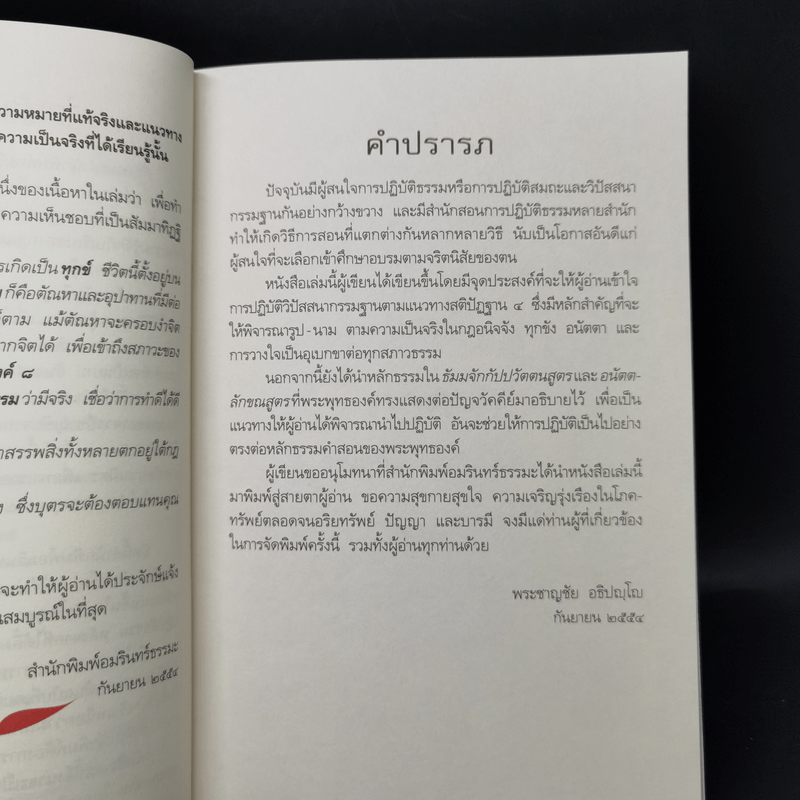 ความหมายที่แท้จริงและแนวทาง
ความเป็นจริงที่ได้เรียนรู้นั้น
นึ่งของเนื้อหาในเล่มว่า เพื่อทำ
ความเห็นชอบที่เป็นสัมมาทิฏฐิ
รเกิดเป็น ทุกข์ ชีวิตนี้ตั้งอยู่บน
ก็คือตัณหาและอุปาทานที่มีต่อ
ก็ตาม แม้ตัณหาจะครอบงำจิต
ากจิตได้ เพื่อเข้าถึงสภาวะของ
งค์ ๘
รม ว่ามีจริง เชื่อว่าการทำดีได้ดี
าสรรพสิ่งทั้งหลายตกอยู่ใต้กฎ
ง ซึ่งบุตรจะต้องตอบแทนคุณ
จะทำให้ผู้อ่านได้ประจักษ์แจ้ง
นสมบูรณ์ในที่สุด
สำนักพิมพ์อมรินทร์ธรรมะ
กันยายน ๒๕๕๔
คำปรารภ
ปัจจุบันมีผู้สนใจการปฏิบัติธรรมหรือการปฏิบัติสมถะและวิปัสสนา
กรรมฐานกันอย่างกว้างขวาง และมีสำนักสอนการปฏิบัติธรรมหลายสำนัก
ทำให้เกิดวิธีการสอนที่แตกต่างกันหลากหลายวิธี นับเป็นโอกาสอันดีแก่
ผู้สนใจที่จะเลือกเข้าศึกษาอบรมตามจริตนิสัยของตน
หนังสือเล่มนี้ผู้เขียนได้เขียนขึ้นโดยมีจุดประสงค์ที่จะให้ผู้อ่านเข้าใจ
การปฏิบัติวิปัสสนากรรมฐานตามแนวทางสติปัฏฐาน ๔ ซึ่งมีหลักสำคัญที่จะ
ให้พิจารณารูป-นาม ตามความเป็นจริงในกฎอนิจจัง ทุกขัง อนัตตา และ
การวางใจเป็นอุเบกขาต่อทุกสภาวธรรม
นอกจากนี้ยังได้นำหลักธรรมใน ธัมมจักกัปปวัตตนสูตร และ อนัตต-
ลักขณสูตร ที่พระพุทธองค์ทรงแสดงต่อปัญจวัคคีย์มาอธิบายไว้ เพื่อเป็น
แนวทางให้ผู้อ่านได้พิจารณานำไปปฏิบัติ อันจะช่วยให้การปฏิบัติเป็นไปอย่าง
ตรงต่อหลักธรรมคำสอนของพระพุทธองค์
ผู้เขียนขออนุโมทนาที่สำนักพิมพ์อมรินทร์ธรรมะได้นำหนังสือเล่มนี้
มาพิมพ์สู่สายตาผู้อ่าน ขอความสุขกายสุขใจ ความเจริญรุ่งเรืองในโภค-
ทรัพย์ตลอดจนอริยทรัพย์ ปัญญา และบารมี จงมีแด่ท่านผู้ที่เกี่ยวข้อง
ในการจัดพิมพ์ครั้งนี้ รวมทั้งผู้อ่านทุกท่านด้วย
พระชาญชัย อธิปญฺโญ
กันยายน ๒๕๕๔